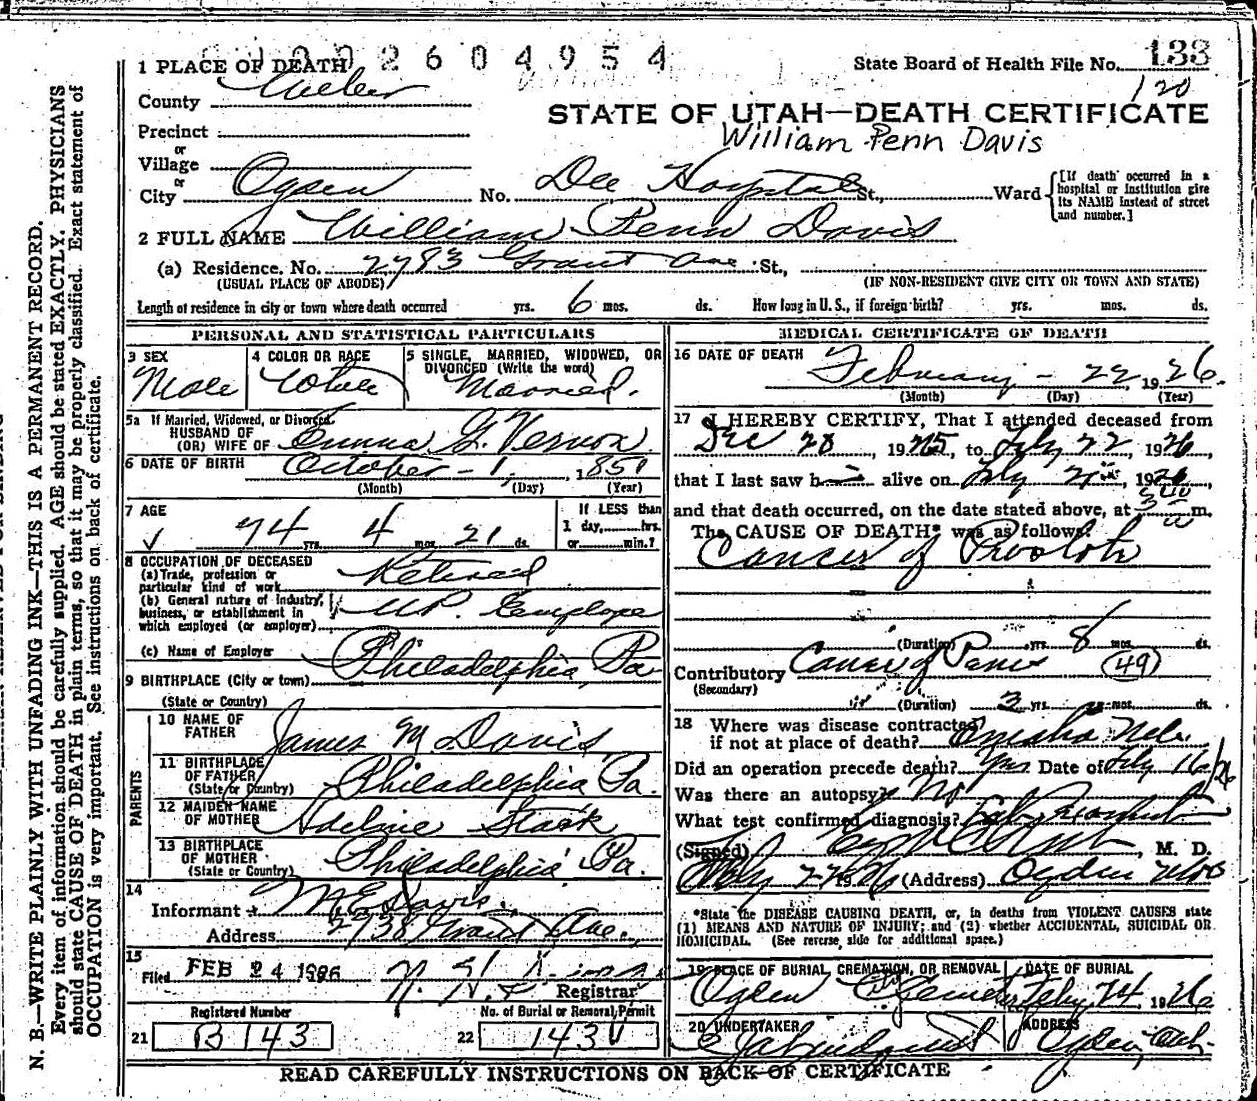 2604954
1 PLACE OF DEATH
State Board of Health File No. 133
120
County Weber
STATE OF UTAH—DEATH CERTIFICATE
William Penn Davis
Precinct
or
Village
or
City Ogden No. Dee Hospital St., Ward
[If death occurred in a hospital or institution give its NAME instead of street and number.]
2 FULL NAME William Penn Davis
(a) Residence. No. 2783 Grant Ave St.,
(USUAL PLACE OF ABODE) (IF NON-RESIDENT GIVE CITY OR TOWN AND STATE)
Length of residence in city or town where death occurred yrs. 6 mos. ds. How long in U.S., if foreign birth? yrs. mos. ds.
PERSONAL AND STATISTICAL PARTICULARS
3 SEX 4 COLOR OR RACE 5 SINGLE, MARRIED, WIDOWED, OR DIVORCED (Write the word)
Male White Married.
5a If Married, Widowed, or Divorced
HUSBAND OF
(OR) WIFE OF Emma G. Vernon
6 DATE OF BIRTH October - 1, 1851
(Month) (Day) (Year)
7 AGE If LESS than
1 day, hrs.
74 yrs. 4 mos. 21 ds. or min.?
8 OCCUPATION OF DECEASED
(a) Trade, profession or
particular kind of work Retired
(b) General nature of industry,
business, or establishment in
which employed (or employer) U.P. Employe
(c) Name of Employer
9 BIRTHPLACE (City or town) Philadelphia, Pa
(State or Country)
PARENTS
10 NAME OF
FATHER James M Davis
11 BIRTHPLACE
OF FATHER
(State or Country) Philadelphia Pa.
12 MAIDEN NAME
OF MOTHER Adeline Stack
13 BIRTHPLACE
OF MOTHER
(State or Country) Philadelphia Pa.
14
Informant M E Davis.
Address 2738 Grant Ave.,
15
Filed FEB 24 1926
Registrar
Registered Number No. of Burial or Removal Permit
21 B 143 22
MEDICAL CERTIFICATE OF DEATH
16 DATE OF DEATH
February - 22, 1926.
(Month) (Day) (Year)
17 I HEREBY CERTIFY, That I attended deceased from
Dec 28, 1925, to Feby 22 1926,
that I last saw h alive on Feby 1926,
and that death occurred, on the date stated above, at m.
The CAUSE OF DEATH* was as follows:
Cancer of Prostate
(Duration) yrs. 8 mos. ds.
Contributory Cancer of Penis (49)
(Secondary)
(Duration) 3 yrs. mos. ds.
18 Where was disease contracted
if not at place of death? Omaha Neb.
Did an operation precede death? Yes Date of Feby 16/26
Was there an autopsy? No
What test confirmed diagnosis?
(Signed) , M. D.
1926 (Address) Ogden Utah
*State the DISEASE CAUSING DEATH, or, in deaths from VIOLENT CAUSES state
(1) MEANS AND NATURE OF INJURY; and (2) whether ACCIDENTAL, SUICIDAL OR
HOMICIDAL. (See reverse side for additional space.)
19 PLACE OF BURIAL, CREMATION, OR REMOVAL DATE OF BURIAL
Ogden City Cemetery Feby 24 1926
20 UNDERTAKER ADDRESS
Ogden, Utah.
READ CAREFULLY INSTRUCTIONS ON BACK OF CERTIFICATE
N. B.—WRITE PLAINLY WITH UNFADING INK—THIS IS A PERMANENT RECORD.
Every item of information should be carefully supplied. AGE should be stated EXACTLY. PHYSICIANS
should state CAUSE OF DEATH in plain terms, so that it may be properly classified. Exact statement of
OCCUPATION is very important. See instructions on back of certificate.